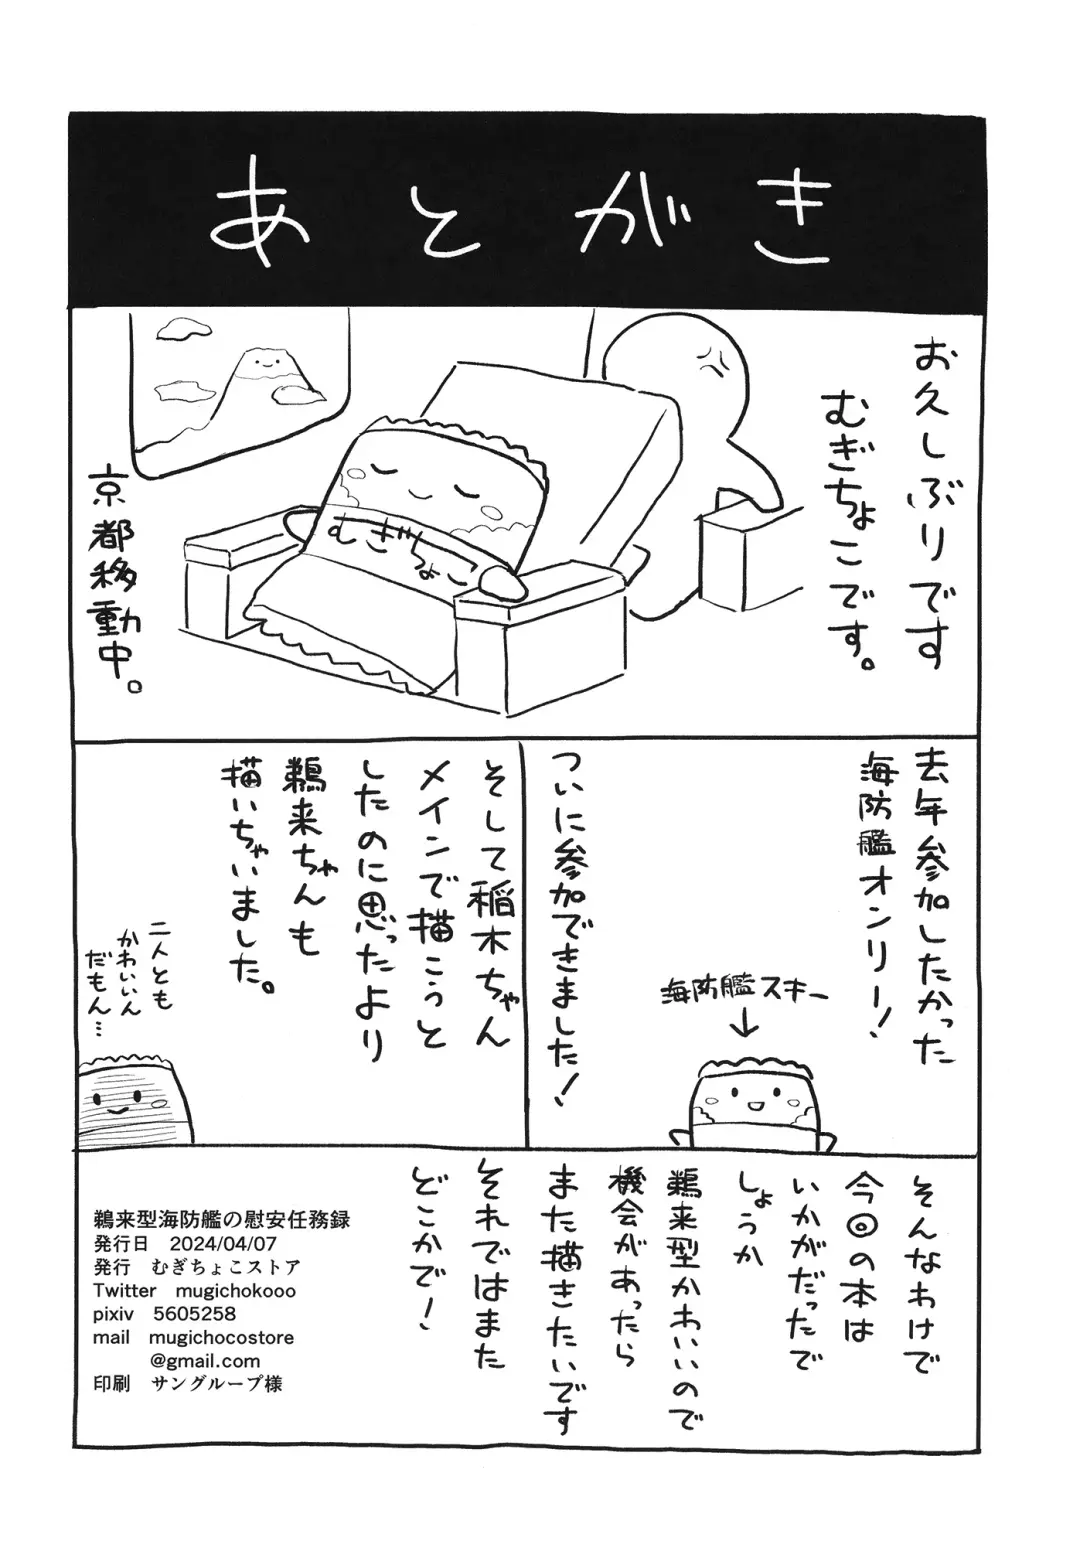 あとがき
お久しぶりです
むぎちょこです。
むぎ
ちょこ
京都移動中。
去年参加したかった
海防艦オンリー!
海防艦スキー
ついに参加できました!
そして稲木ちゃん
メインで描こうと
したのに思ったより
鵜来ちゃんも
描いちゃいました。
二人とも
かわいいん
だもん…
そんなわけで
今回の本は
いかがだったで
しょうか
鵜来型かわいいので
機会があったら
また描きたいです
それではまた
どこかで!
鵜来型海防艦の慰安任務録
発行日 2024/04/07
発行 むぎちょこストア
Twitter mugichokooo
pixiv 5605258
mail mugichocostore
@gmail.com
印刷 サングループ様